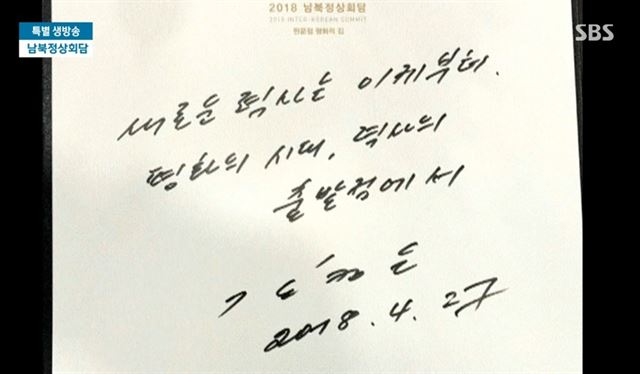 특별 생방송
남북정상회담
SBS
2018 남북정상회담
2018 INTER-KOREAN SUMMIT
판문점 평화의 집
새로운 력사는 이제부터.
평화의 시대, 력사의
출발점에서
김정은
2018. 4. 27